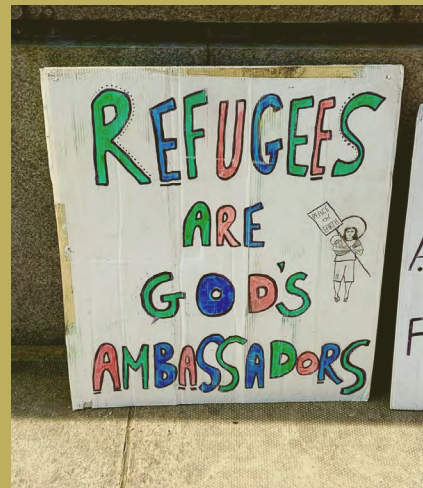 REFUGEES
ARE
GOD'S
AMBASSADORS
PEACE
ON
EARTH
A
F